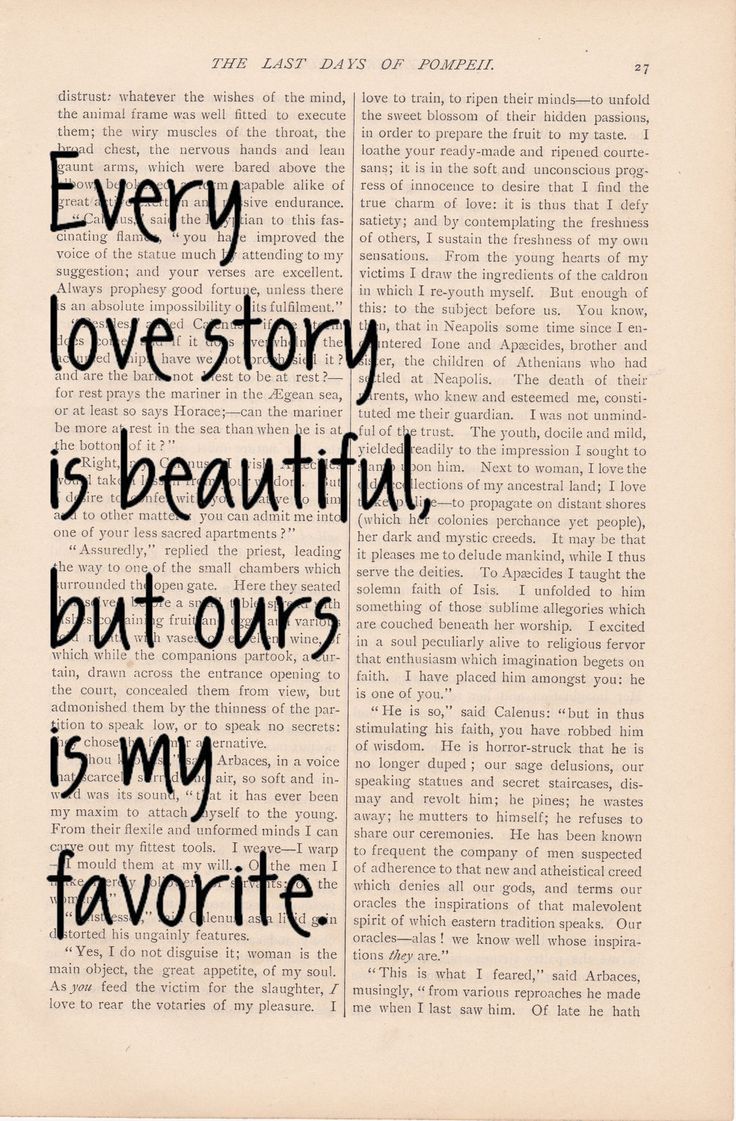 THE LAST DAYS OF POMPEII. 27
Every
love story
is beautiful,
but ours
is my
favorite.
distrust: whatever the wishes of the mind,
the animal frame was well fitted to execute
them; the wiry muscles of the throat, the
broad chest, the nervous hands and lean
gaunt arms, which were bared above the
capable alike of
great endurance.
said the to this fas-
cinating “you have improved the
voice of the statue much attending to my
suggestion; and your verses are excellent.
Always prophesy good fortune, unless there
is an absolute impossibility of its fulfilment.”
it
the
have we not it?
and are the not to be at rest?—
for rest prays the mariner in the Ægean sea,
or at least so says Horace;—can the mariner
be more at rest in the sea than when he is at
the bottom of it?”
“Right,
to him
and to other matters you can admit me into
one of your less sacred apartments?”
“Assuredly,” replied the priest, leading
the way to one of the small chambers which
surrounded the open gate. Here they seated
a
fruit
with vases wine,
which while the companions partook, a cur-
tain, drawn across the entrance opening to
the court, concealed them from view, but
admonished them by the thinness of the par-
tition to speak low, or to speak no secrets:
chose
Arbaces, in a voice
air, so soft and in-
was its sound, “that it has ever been
my maxim to attach myself to the young.
From their flexile and unformed minds I can
carve out my fittest tools. I weave—I warp
—I mould them at my will. Of the men I
the
Calenus as a livid grin
distorted his ungainly features.
“Yes, I do not disguise it; woman is the
main object, the great appetite, of my soul.
As you feed the victim for the slaughter, I
love to rear the votaries of my pleasure. I
love to train, to ripen their minds—to unfold
the sweet blossom of their hidden passions,
in order to prepare the fruit to my taste. I
loathe your ready-made and ripened courte-
sans; it is in the soft and unconscious prog-
ress of innocence to desire that I find the
true charm of love: it is thus that I defy
satiety; and by contemplating the freshness
of others, I sustain the freshness of my own
sensations. From the young hearts of my
victims I draw the ingredients of the caldron
in which I re-youth myself. But enough of
this: to the subject before us. You know,
then, that in Neapolis some time since I en-
countered Ione and Apæcides, brother and
sister, the children of Athenians who had
settled at Neapolis. The death of their
parents, who knew and esteemed me, consti-
tuted me their guardian. I was not unmind-
ful of the trust. The youth, docile and mild,
yielded readily to the impression I sought to
stamp upon him. Next to woman, I love the
old recollections of my ancestral land; I love
to keep alive—to propagate on distant shores
(which her colonies perchance yet people),
her dark and mystic creeds. It may be that
it pleases me to delude mankind, while I thus
serve the deities. To Apæcides I taught the
solemn faith of Isis. I unfolded to him
something of those sublime allegories which
are couched beneath her worship. I excited
in a soul peculiarly alive to religious fervor
that enthusiasm which imagination begets on
faith. I have placed him amongst you: he
is one of you.”
“He is so,” said Calenus: “but in thus
stimulating his faith, you have robbed him
of wisdom. He is horror-struck that he is
no longer duped; our sage delusions, our
speaking statues and secret staircases, dis-
may and revolt him; he pines; he wastes
away; he mutters to himself; he refuses to
share our ceremonies. He has been known
to frequent the company of men suspected
of adherence to that new and atheistical creed
which denies all our gods, and terms our
oracles the inspirations of that malevolent
spirit of which eastern tradition speaks. Our
oracles—alas! we know well whose inspira-
tions they are.”
“This is what I feared,” said Arbaces,
musingly, “from various reproaches he made
me when I last saw him. Of late he hath